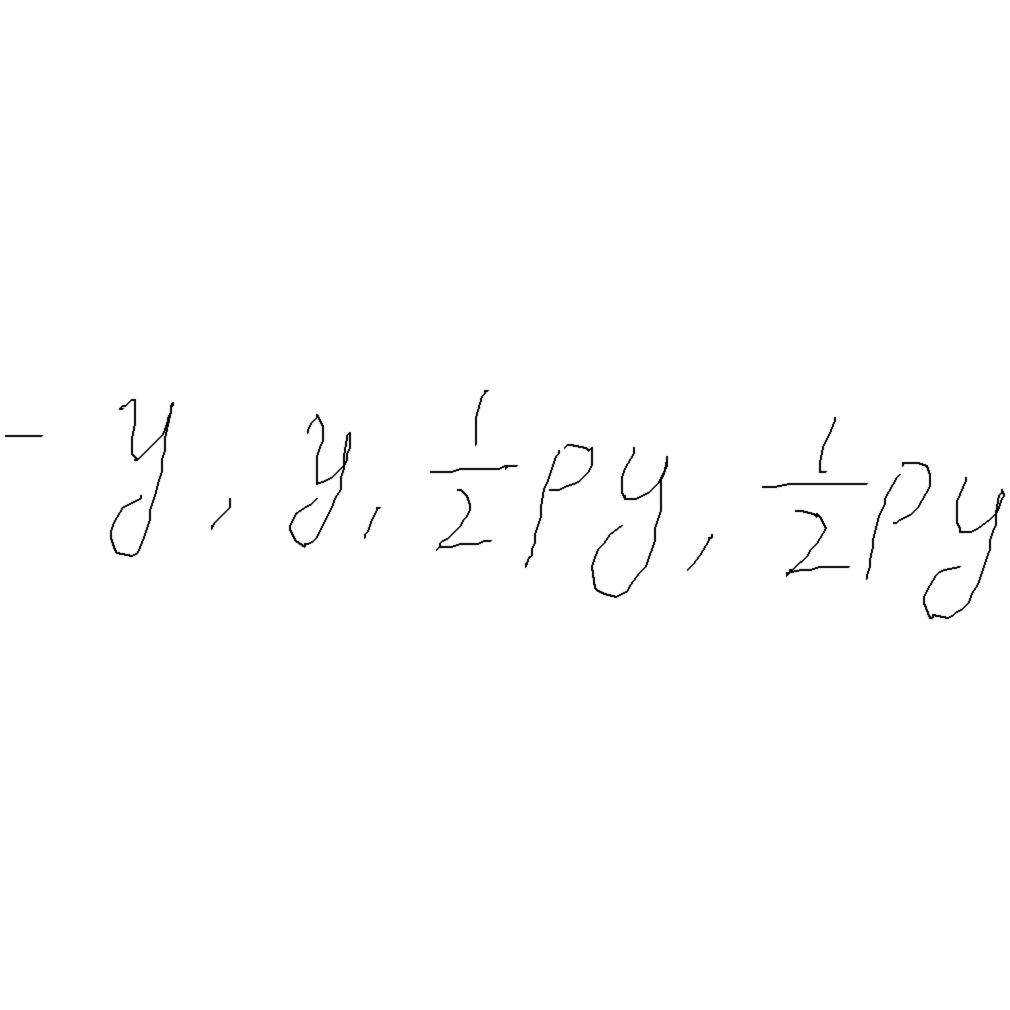 - y, y, \frac{1}{2}py, \frac{1}{2}py